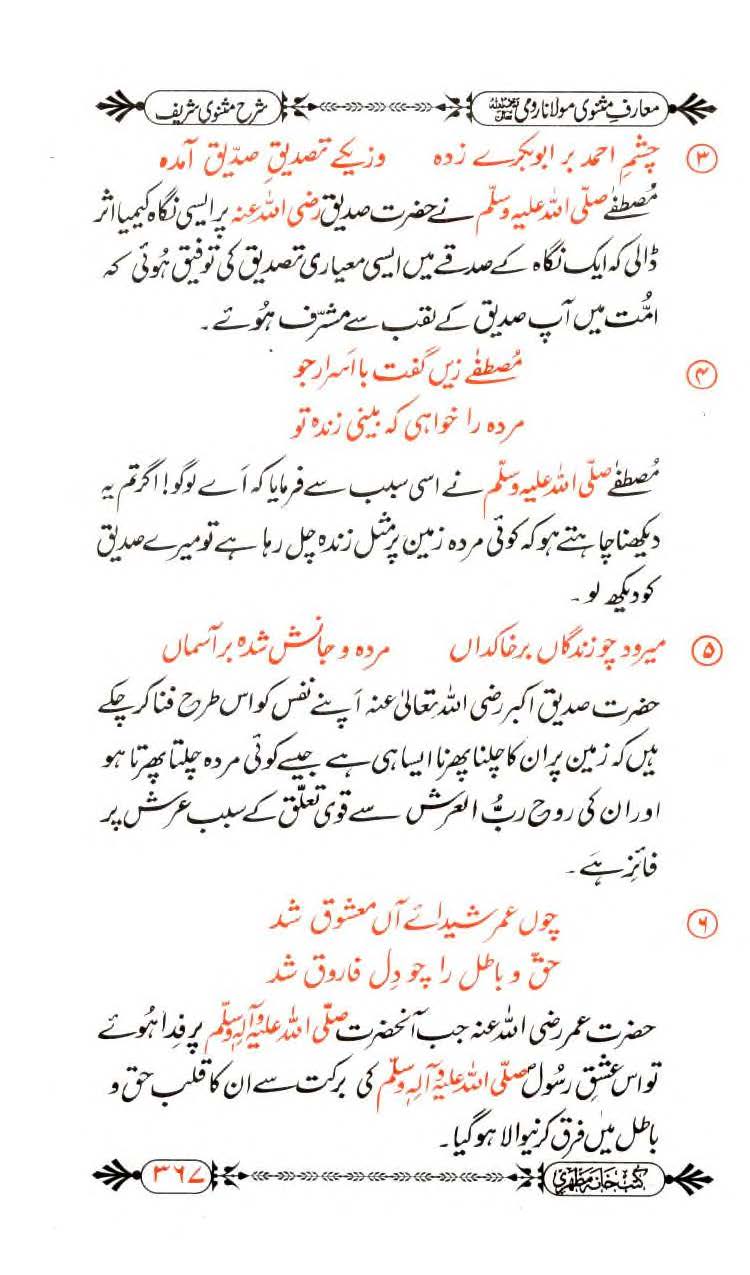 معارفِ مثنوی مولانا رومی رحمۃ اللہ علیہ
شرح مثنوی شریف
۳ چشمِ احمد بر ابوبکرے زدہ وز یکے تصدیقِ صدّیق آمدہ
مُصطفٰے صلّی اللہ علیہ وسلّم نے حضرت صدیق رضی اللہ عنہ پر ایسی نگاہ کیمیا اثر
ڈالی کہ ایک نگاہ کے صدقے میں ایسی معیاری تصدیق کی توفیق ہُوئی کہ
امُّت میں آپ صدیق کے لقب سے مشرّف ہُوئے۔
۴ مُصطفٰے زیں گفت با اسرار جو
مردہ را خواہی کہ بینی زندہ تو
مُصطفٰے صلّی اللہ علیہ وسلّم نے اسی سبب سے فرمایا کہ اَے لوگو! اگر تم یہ
دیکھنا چاہتے ہو کہ کوئی مردہ زمین پر مثل زندہ چل رہا ہے تو میرے صدیق
کو دیکھ لو۔
۵ میرود چو زندگاں بر خاکداں مردہ و جانش شدہ بر آسماں
حضرت صدیق اکبر رضی اللہ تعالیٰ عنہ اَپنے نفس کو اس طرح فنا کر چکے
ہیں کہ زمین پر ان کا چلنا پھرنا ایسا ہی ہے جیسے کوئی مردہ چلتا پھرتا ہو
اور ان کی روح ربُّ العرش سے قوی تعلّق کے سبب عرش پر
فائز ہَے۔
۶ چوں عمر شیدائے آں معشوق شد
حقّ و باطل را چو دِل فاروق شد
حضرت عمر رضی اللہ عنہ جب آنحضرت صلّی اللہ علیہ وآلہٖ وسلّم پر فِدا ہُوئے
تو اس عشقِ رسُولؐ صلّی اللہ علیہ وآلہٖ وسلّم کی برکت سے ان کا قلب حق و
باطل میں فرق کرنیوالا ہو گیا۔
کتب خانہ مظہری
۳۶۷